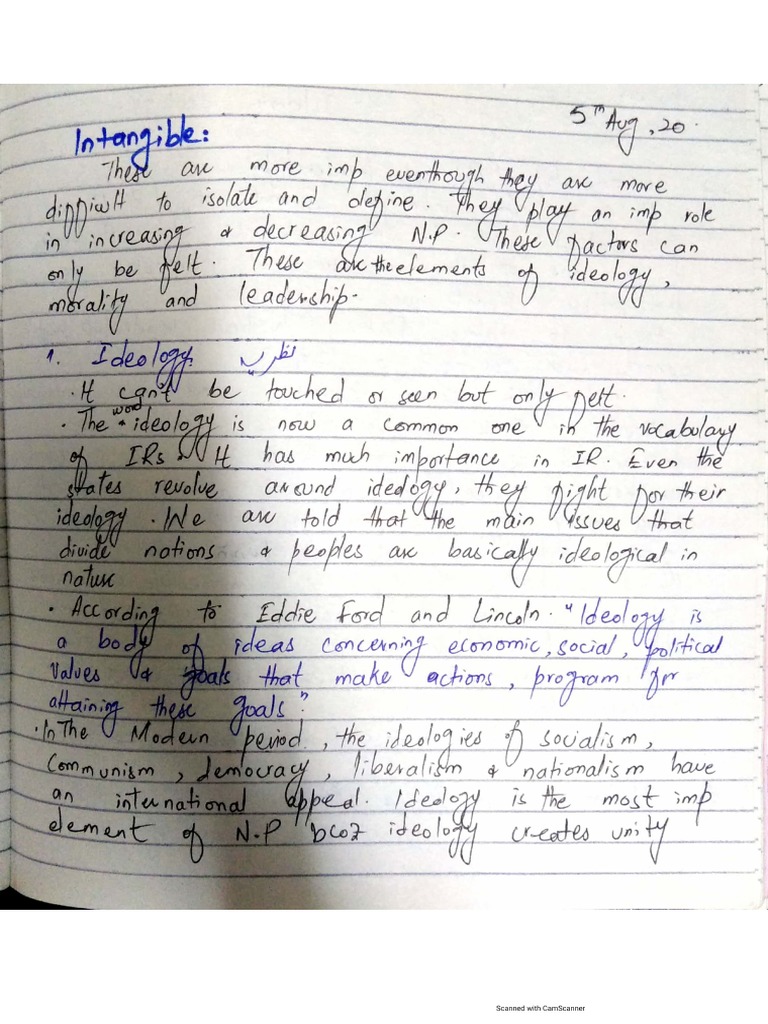 5th Aug, 20.
Intangible:
These are more imp eventhough they are more
difficult to isolate and define. They play an imp role
in increasing & decreasing N.P. These factors can
only be felt. These are the elements of ideology,
morality and leadership.
1. Ideology. نظریہ
· It can't be touched or seen but only felt.
· The word ideology is now a common one in the vocabulary
of IRs. It has much importance in IR. Even the
states revolve around ideology, they fight for their
ideology. We are told that the main issues that
divide nations & peoples are basically ideological in
nature
· According to Eddie Ford and Lincoln. "Ideology is
a body of ideas concerning economic, social, political
values & goals that make actions, program for
attaining these goals"
· In The Modern period, the ideologies of socialism,
Communism, democracy, liberalism & nationalism have
an international appeal. Ideology is the most imp
element of N.P bcoz ideology creates unity
Scanned with CamScanner